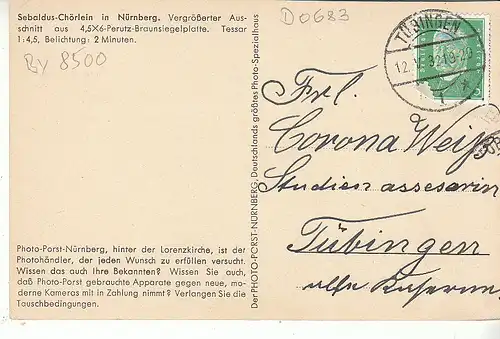 Sebaldus-Chörlein in Nürnberg. Vergrößerter Aus-
schnitt aus 4,5X6-Perutz-Braunsiegelplatte. Tessar
1:4,5, Belichtung: 2 Minuten.
BY 8500
D0683
TÜBINGEN
12. 32.19-20
Frl.
Corona Weiß
Studienassesorin
Tübingen
alte Kaserne
Der PHOTO-PORST-NÜRNBERG, Deutschlands größtes Photo-Spezialhaus
Photo-Porst-Nürnberg, hinter der Lorenzkirche, ist der
Photohändler, der jeden Wunsch zu erfüllen versucht.
Wissen das auch Ihre Bekannten? Wissen Sie auch,
daß Photo-Porst gebrauchte Apparate gegen neue, mo-
derne Kameras mit in Zahlung nimmt? Verlangen Sie die
Tauschbedingungen.